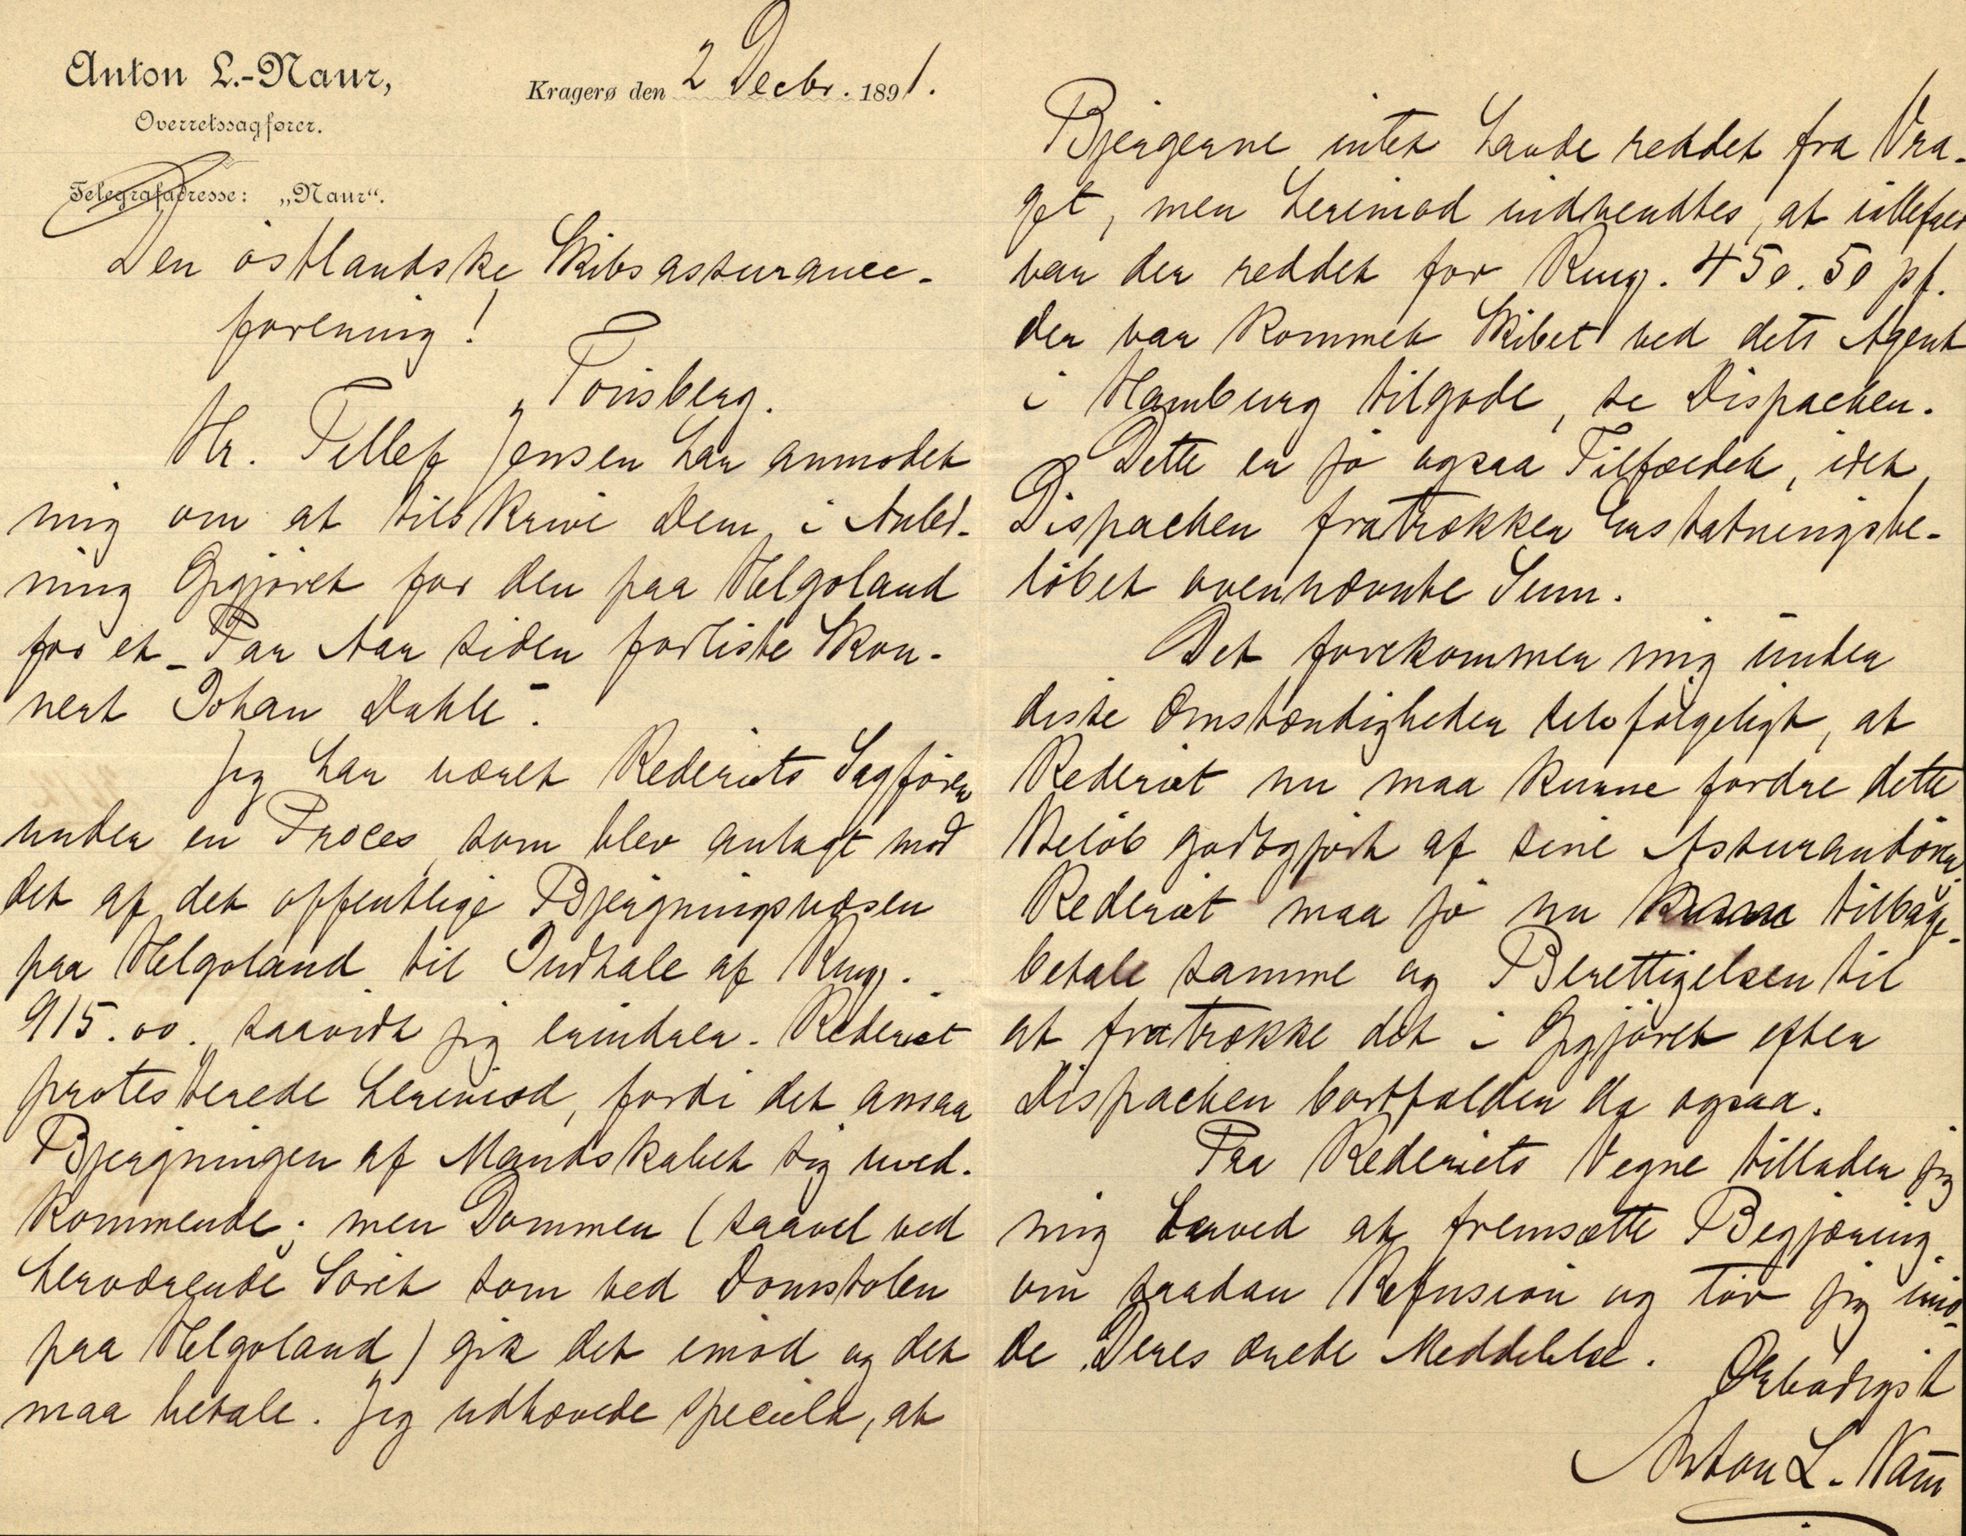 Anton L.-Naur,
Overretssagfører.
Telegrafadresse: „Naur“.
Kragerø den 2 Decbr. 1891.
Den östlandske Skibsassurance-
forening!
Tönsberg.
Hr. Tellef Jensen har anmodet
mig om at tilskrive Dem i Anled-
ning Opgjöret for den paa Helgoland
for et Par Aar siden forliste Skon-
nert "Johan Dahll".
Jeg har været Rederiets Sagförer
under en Proces, som blev anlagt mod
det af det offentlige Bjergningsvæsen
paa Helgoland til Indtale af Rmg.
915.00. saavidt jeg erindrer. Rederiet
protesterede herimod, fordi det ansaa
Bjergningen af Mandskabet sig uved-
kommende; men Dommen (saavel ved
herværende Söret som ved Domstolen
paa Helgoland) gik det imod og det
maa betale. Jeg udhævede specielt, at
Bjergerne intet havde reddet fra Vra-
get, men herimod indvendtes, at iallefald
var der reddet for Rmg. 450.50 pf.
der var kommet Skibet ved dets Agent
i Hamburg tilgode, se Dispachen.
Dette er jo ogsaa Tilfældet, idet
Dispachen fratrækker Erstatningsbe-
löbet ovennævnte Sum.
Det forekommer mig under
disse Omstændigheder selvfölgeligt, at
Rederiet nu maa kunne fordre dette
Belöb godtgjort af sine Assurandörer.
Rederiet maa jo nu tilbage-
betale samme og Berettigelsen til
at fratrække det i Opgjöret efter
Dispachen bortfalder da ogsaa.
Paa Rederiets Vegne tillader jeg
mig herved at fremsætte Begjæring
om saadan Refusion og tör jeg imö-
de Deres ærede Meddelelse.
Ærbödigst
Anton L. Naur